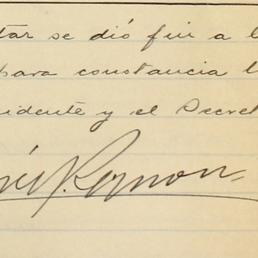 tar se dió fin a l
para constancia l
idente y el Secret